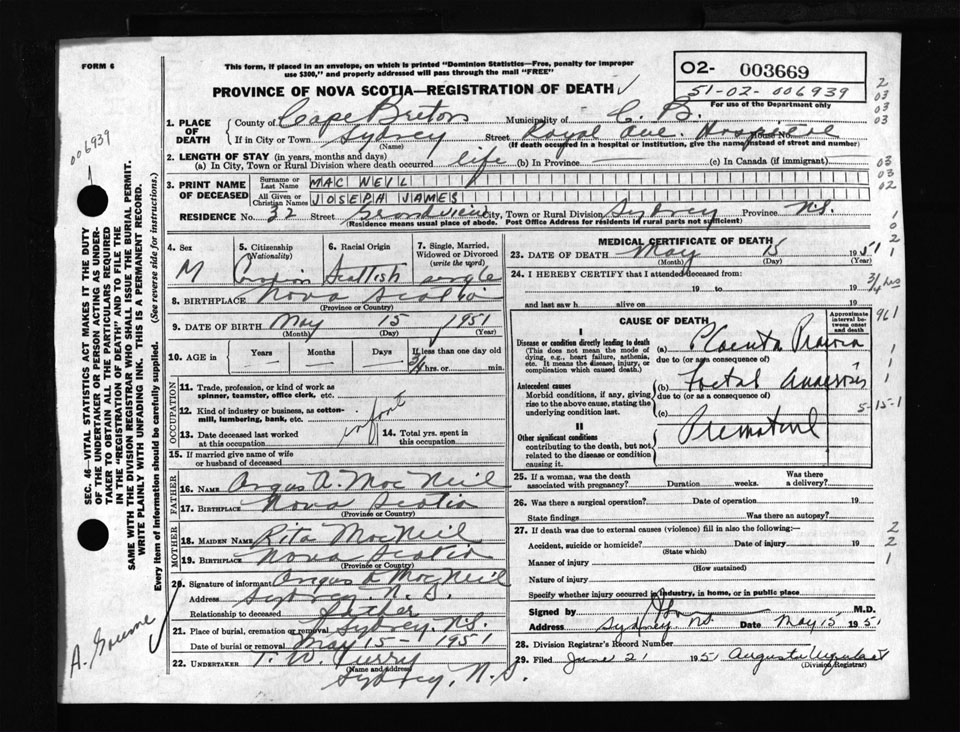 FORM 6
This form, if placed in an envelope, on which is printed "Dominion Statistics—Free, penalty for improper
use $300," and properly addressed will pass through the mail "FREE"
PROVINCE OF NOVA SCOTIA—REGISTRATION OF DEATH
O2- 003669
51-02-006939
For use of the Department only
006939
1. PLACE OF DEATH
County of Cape Breton Municipality of C. B.
If in City or Town Sydney Street Royal Ave. House No.
(Name) (If death occurred in a hospital or institution, give the name instead of street and number)
2. LENGTH OF STAY (in years, months and days)
(a) In City, Town or Rural Division where death occurred life (b) In Province — (c) In Canada (if immigrant)
3. PRINT NAME OF DECEASED
Surname or Last Name MAC NEIL
All Given or Christian Names JOSEPH JAMES
RESIDENCE No. 32 Street Grandview City, Town or Rural Division Sydney Province N.S.
(Residence means usual place of abode. Post Office Address for Residents in rural parts not sufficient)
4. Sex 5. Citizenship (Nationality) 6. Racial Origin 7. Single, Married, Widowed or Divorced (write the word)
M Scottish single
8. BIRTHPLACE Nova Scotia
(Province or Country)
9. DATE OF BIRTH May 15 1951
(Month) (Day) (Year)
10. AGE in Years Months Days If less than one day old
3/4 hrs. or min.
OCCUPATION
11. Trade, profession, or kind of work as
spinner, teamster, office clerk, etc.
12. Kind of industry or business, as cotton-
mill, lumbering, bank, etc.
infant
13. Date deceased last worked at this occupation 14. Total yrs. spent in this occupation
15. If married give name of wife
or husband of deceased
FATHER
16. NAME Angus A. Mac Neil
17. BIRTHPLACE Nova Scotia
(Province or Country)
MOTHER
18. MAIDEN NAME Rita MacNeil
19. BIRTHPLACE Nova Scotia
(Province or Country)
20. Signature of informant Angus A MacNeil
Address Sydney, N. S.
Relationship to deceased Father
21. Place of burial, cremation or removal Sydney. N.S.
Date of burial or removal May 15 - 1951
22. UNDERTAKER T. W. Curry
(Name and address)
Sydney, N.S.
MEDICAL CERTIFICATE OF DEATH
23. DATE OF DEATH May 15 1951
(Month) (Day) (Year)
24. I HEREBY CERTIFY that I attended deceased from
19 to 19
and last saw h alive on 19
3/4 hrs
CAUSE OF DEATH
Approximate interval between onset and death
961
I
Disease or condition directly leading to death
(This does not mean the mode of dying, e.g., heart failure, asthenia, etc. It means the disease, injury, or complication which caused death.)
(a) Placenta Praevia
due to (or as a consequence of)
Antecedent causes
Morbid conditions, if any, giving rise to the above cause, stating the underlying condition last.
(b) Foetal Anoxia
due to (or as a consequence of)
(c)
5-15-1
II
Other significant conditions
contributing to the death, but not related to the disease or condition causing it.
Premature
25. If a woman, was the death associated with pregnancy? Duration weeks. Was there a delivery?
26. Was there a surgical operation? Date of operation 19
State findings Was there an autopsy?
27. If death was due to external causes (violence) fill in also the following:—
Accident, suicide or homicide? Date of injury 19
(State which)
Manner of injury
(How sustained)
Nature of injury
Specify whether injury occurred in industry, in home, or in public place
Signed by M.D.
Address Sydney NS Date May 15 1951
28. Division Registrar's Record Number
29. Filed June 21 1951 Augusta
(Division Registrar)
SEC. 46—VITAL STATISTICS ACT MAKES IT THE DUTY
OF THE UNDERTAKER OR PERSON ACTING AS UNDER-
TAKER TO OBTAIN ALL THE PARTICULARS REQUIRED
IN THE "REGISTRATION OF DEATH" AND TO FILE THE
SAME WITH THE DIVISION REGISTRAR WHO SHALL ISSUE THE BURIAL PERMIT.
WRITE PLAINLY WITH UNFADING INK. THIS IS A PERMANENT RECORD.
Every item of Information should be carefully supplied. (See reverse side for instructions.)
2
03
03
03
03
03
02
1
0
2
1
1
1
1
2
2
1